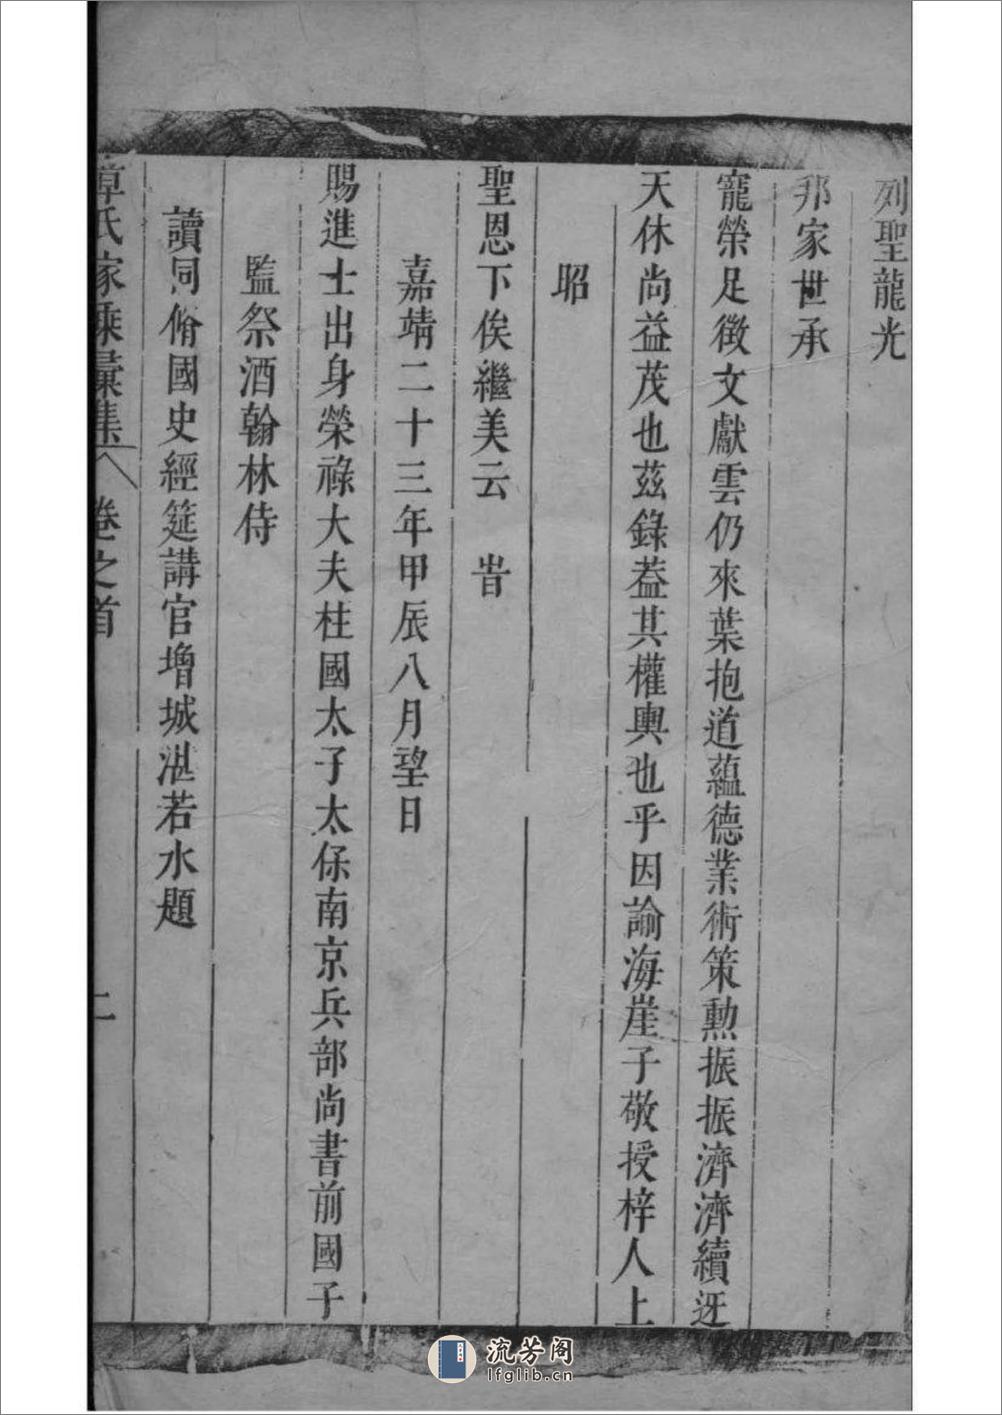 列聖龍光
邦家世承
寵榮足徵文獻雲仍來葉抱道蘊德業術策勲振振濟濟續迓
天休尚益茂也茲錄葢其權輿也乎因諭海崖子敬授梓人上
昭
聖恩下俟繼美云 旹
嘉靖二十三年甲辰八月望日
賜進士出身榮祿大夫柱國太子太保南京兵部尚書前國子
監祭酒翰林侍
讀同脩國史經筵講官增城湛若水題
氏家乘彙集 卷之首 二
流芳阁
lfglib.cn